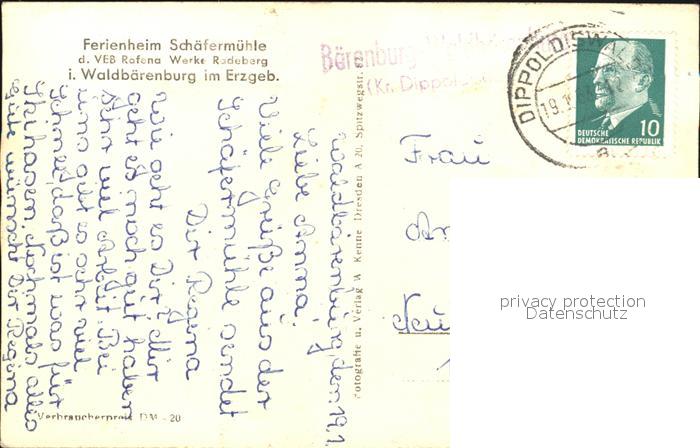 Ferienheim Schäfermühle
d. VEB Rafena Werke Radeberg
i. Waldbärenburg im Erzgeb.
Bärenburg
(Kr. Dippoldis
DIPPOLDISW
19.1
a
10
DEUTSCHE
DEMOKRATISCHE REPUBLIK
Waldbärenburg, den 19.1.
Liebe Anna!
Viele Grüße aus der
Schäfermühle sendet
Dir Regina
Wie geht es Dir? Mir
geht es noch gut haben
sehr viel Arbeit. Bei
uns gibt es sehr viel
Schnee, daß ist was für
Skihasen. Nochmals alles
Gute wünscht Dir Regina
Fotografie u. Verlag W. Kenne Dresden A 20, Spitzwegstr.
Frau
An
Neu
Verbraucherpreis DM -20
privacy protection
Datenschutz